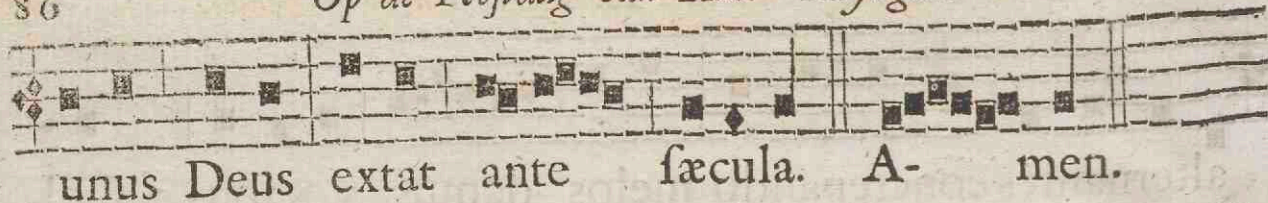 86
Op de
unus Deus extat ante ſæcula. A- men.